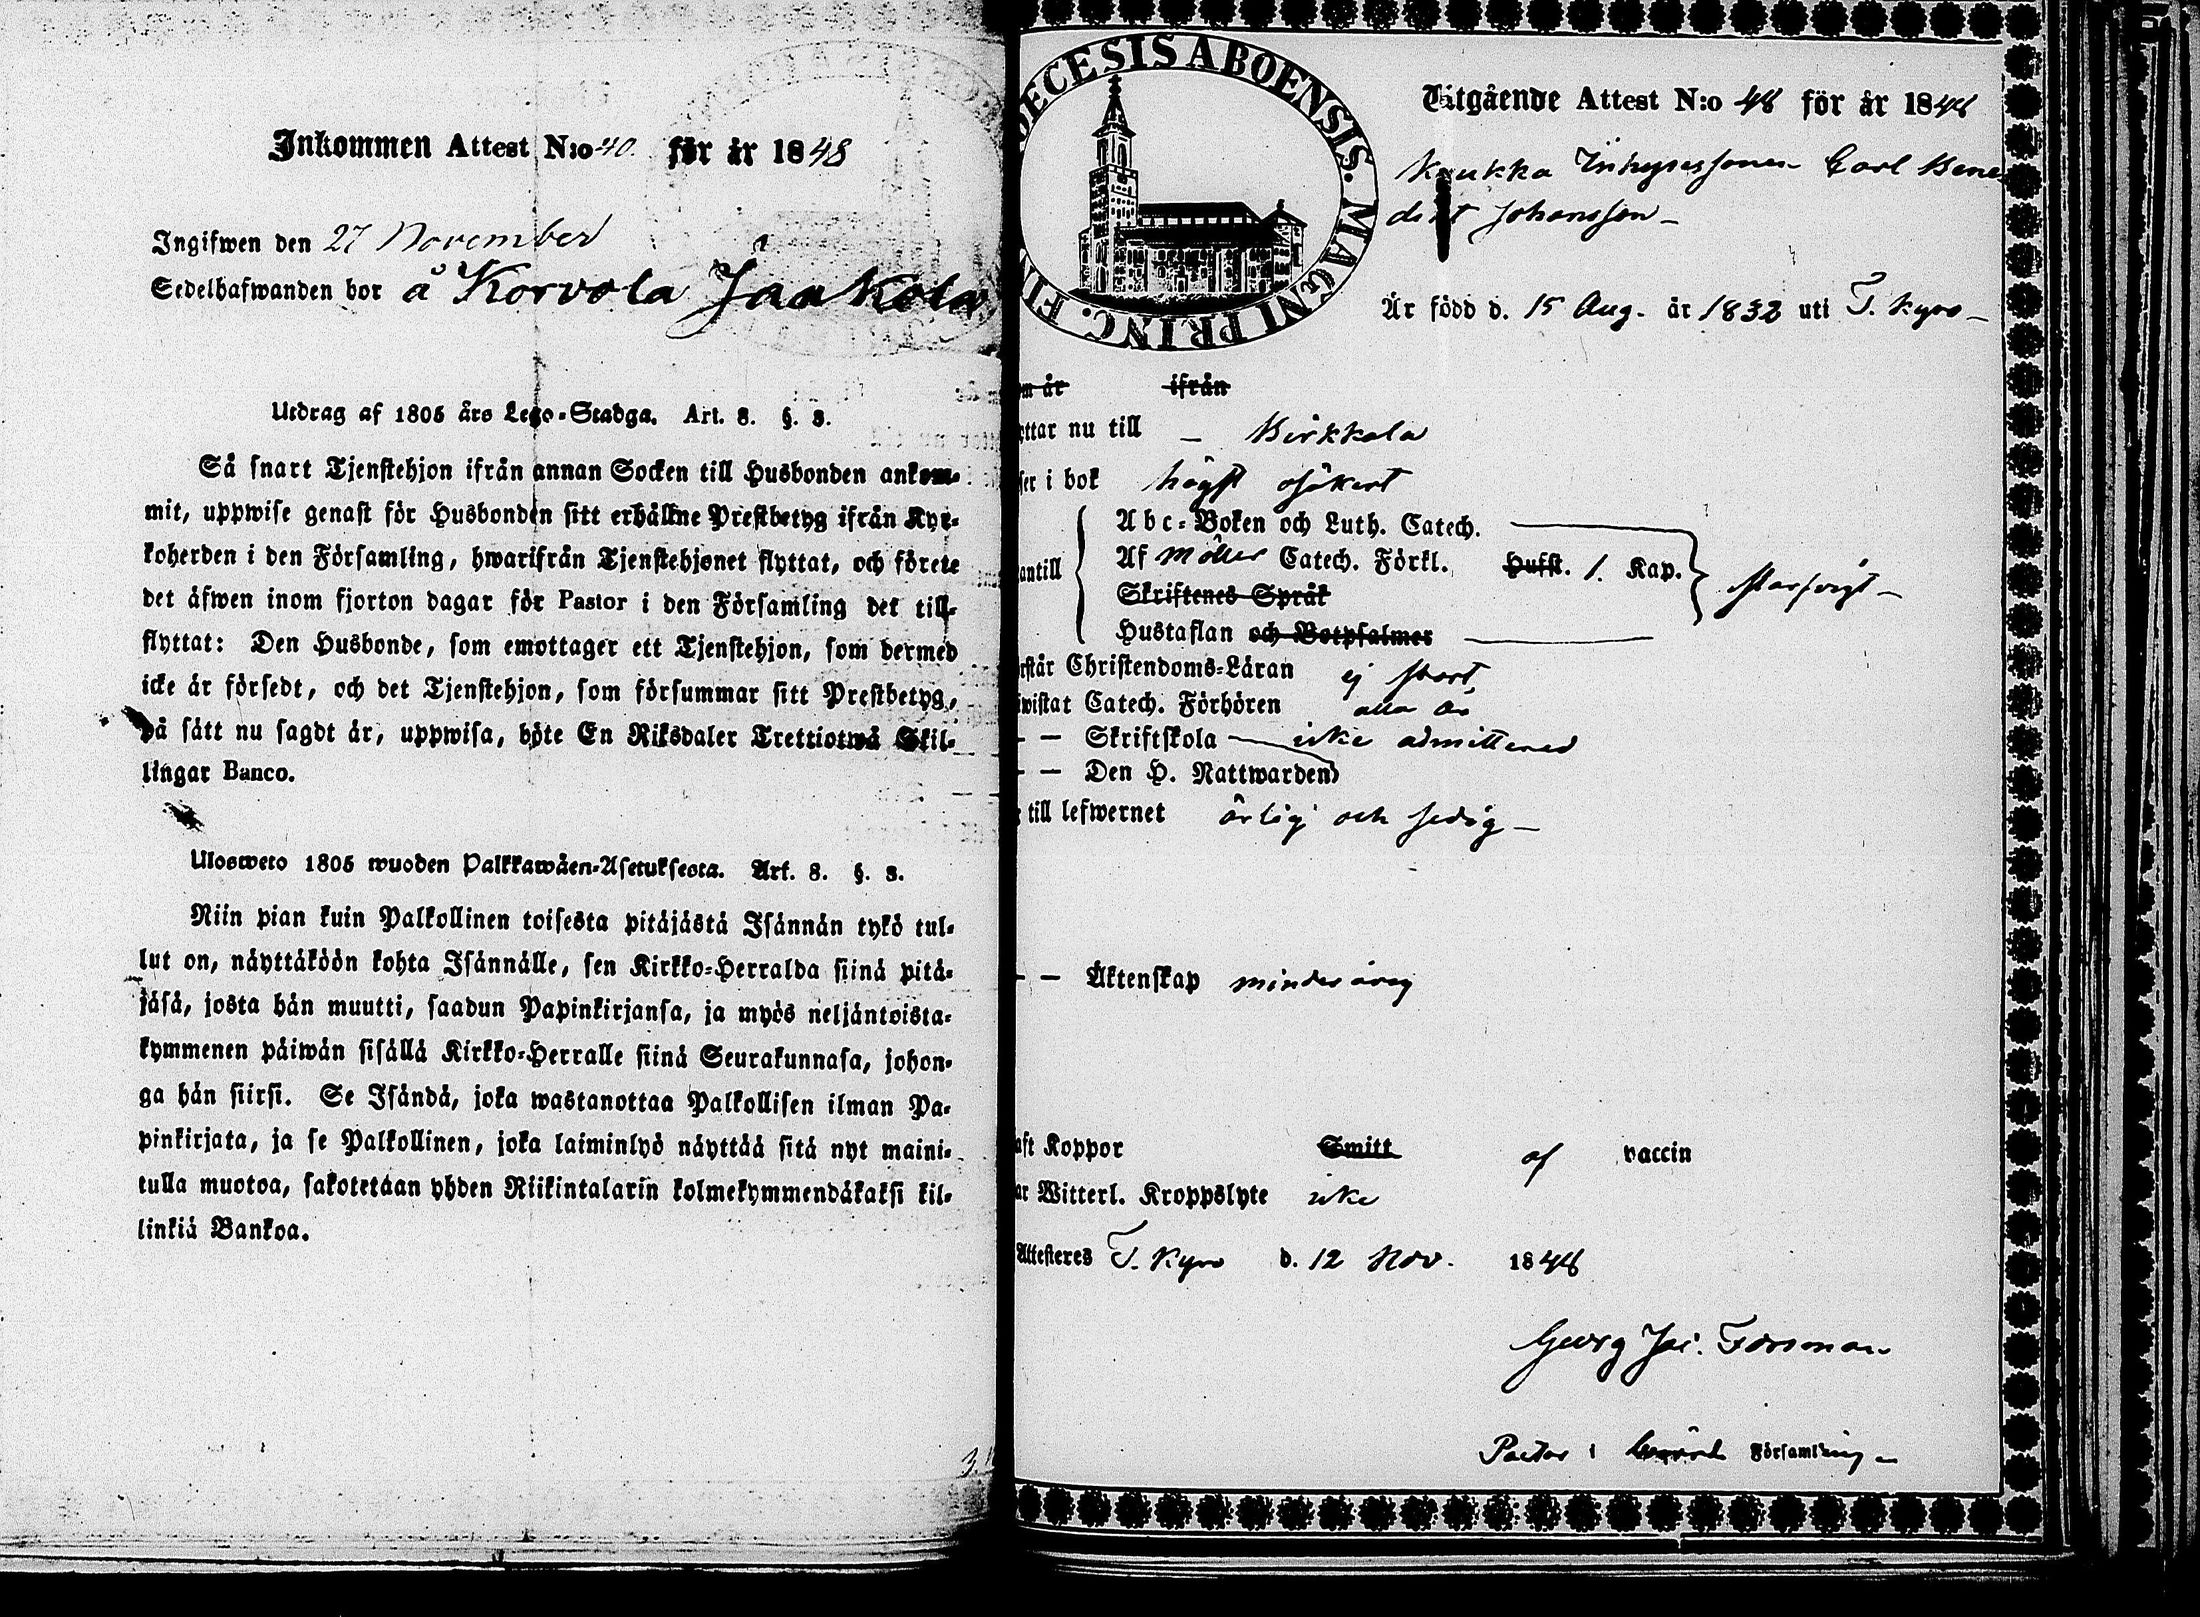 Inkommen Attest N:o 40. för år 1848
Ingifwen den 27 November
Sedelhafwanden bor å Korvola Jaakola
Utdrag af 1805 års Lego-Stadga. Art. 8. §. 3.
Så snart Tjenstehjon ifrån annan Socken till Husbonden ankom-
mit, uppwise genast för Husbonden sitt erhållne Prestbetyg ifrån Kyr-
koherden i den Församling, hwarifrån Tjenstehjonet flyttat, och förete
det äfwen inom fjorton dagar för Pastor i den Församling det till-
flyttat: Den Husbonde, som emottager ett Tjenstehjon, som dermed
icke är försedt, och det Tjenstehjon, som försummar sitt Prestbetyg,
på sätt nu sagdt är, uppwisa, böte En Riksdaler Trettiotwå Skil-
lingar Banco.
Ulosweto 1805 wuoden Palkkawäen-Asetuksesta. Art. 8. §. 3.
Niin pian kuin Palkollinen toisesta pitäjästä Isännän tykö tul-
lut on, näyttäköön kohta Isännälle, sen Kirkko-Herralda siinä pitä-
jäsä, josta hän muutti, saadun Papinkirjansa, ja myös neljäntoista-
kymmenen päiwän sisällä Kirkko-Herralle siinä Seurakunnasa, johon-
ga hän siirsi. Se Isändä, joka wastanottaa Palkollisen ilman Pa-
pinkirjata, ja se Palkollinen, joka laiminlyö näyttää sitä nyt maini-
tulla muotoa, sakotetaan yhden Riikintalarin kolmekymmendäkaksi kil-
linkiä Bankoa.
DECESIS ABOENSIS. MAGNI PRINC. FI
Utgående Attest N:o 48 för år 1848
Krukka Inhysessonen Carl Bene
dikt Johansson
Är född d. 15 Aug. år 1832 uti T. Kyro
m år ifrån
ttar nu till Birkkala
ser i bok högst osäkert
antill
Abc-Boken och Luth. Catech.
Af Möller Catech. Förkl. Hufst. 1. Kap.
Skriftenes Språk
Hustaflan och Botpsalmer
rstår Christendoms-Läran ej stort
iwistat Catech. Förhören alla år
– – Skriftskola icke admitterad
– – Den H. Nattwarden
till lefwernet ärlig och sedig
– – Äktenskap minderårig
aft Koppor Smitt af vaccin
ar Witterl. Kroppslyte icke
Attesteres T. Kyro d. 12 Nov. 1848
Georg Jac. Forsman
Pastor i Församling